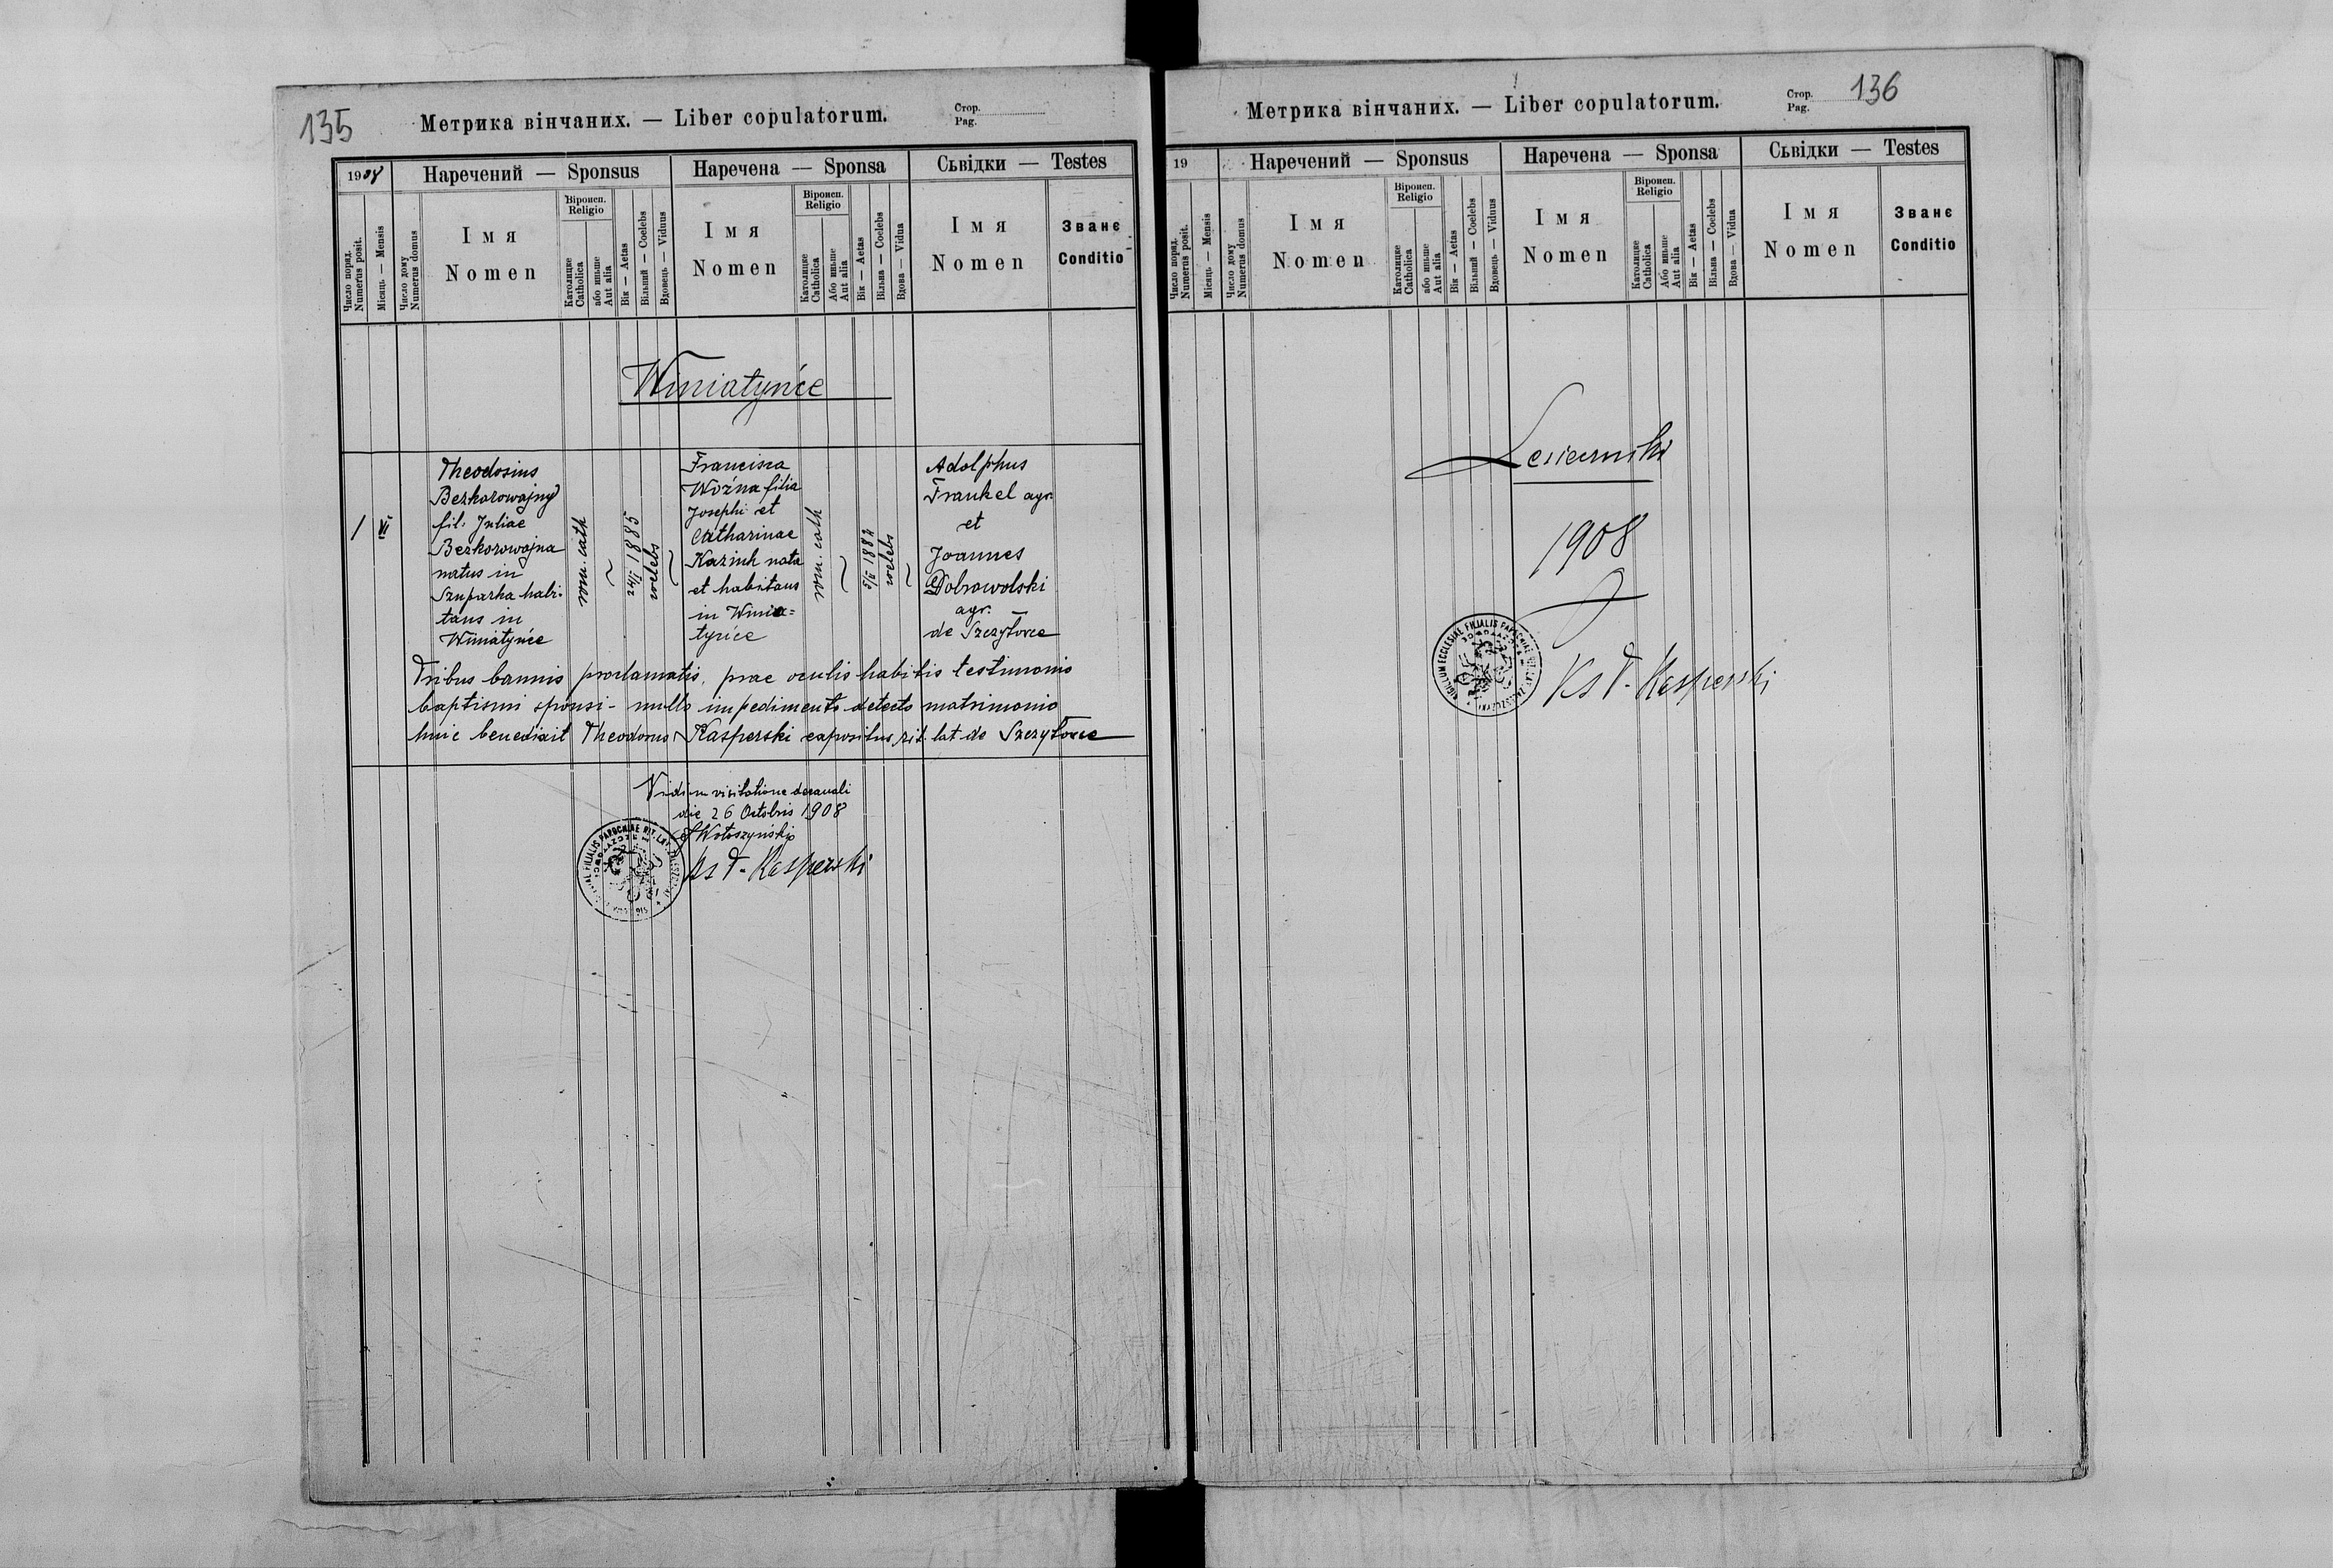 135
Метрика вінчаних. — Liber copulatorum.
Стор.
Pag.
1908
Наречений — Sponsus
Наречена — Sponsa
Сьвідки — Testes
Число поряд.
Numerus posit.
Місяць — Mensis
Число дому
Numerus domus
Імя
Nomen
Віроисп.
Religio
Католицке
Catholica
або иньше
Aut alia
Вік — Aetas
Вільний — Coelebs
Вдовець — Viduus
Імя
Nomen
Віроисп.
Religio
Католицке
Catholica
Або иньше
Aut alia
Вік — Aetas
Вільна — Coelebs
Вдова — Vidua
Імя
Nomen
Званє
Conditio
Winiatyńce
1
VI
Theodosius
Bezkorowajny
fil. Juliae
Bezkorowajna
natus in
Szuparka habi-
tans in
Winiatyńce
rom. cath
1885
coelebs
Francisca
Woźna filia
Josephi et
Catharinae
Kaziuk nata
et habitans
in Winia=
tyńce
rom. cath
coelebs
Adolphus
Frankel agr.
et
Joannes
Dobrowolski
agr.
de Szczytowce
Tribus bannis proclamatis, prae oculis habitis testimonio
baptismi sponsi - nullo impedimento detecto matrimonio
huic benedixit Theodorus Kasperski expositus rit. lat de Szczytowce
Vidi in visitatione decanali
die 26 Octobris 1908
Wołoszyński
Ks T. Kasperski
FILIALIS PAROCHIAE RIT. LAT.
136
Метрика вінчаних. — Liber copulatorum.
Стор.
Pag.
19
Наречений — Sponsus
Наречена — Sponsa
Сьвідки — Testes
Число поряд.
Numerus posit.
Місяць — Mensis
Число дому
Numerus domus
Імя
Nomen
Віроисп.
Religio
Католицке
Catholica
або иньше
Aut alia
Вік — Aetas
Вільний — Coelebs
Вдовець — Viduus
Імя
Nomen
Віроисп.
Religio
Католицке
Catholica
Або иньше
Aut alia
Вік — Aetas
Вільна — Coelebs
Вдова — Vidua
Імя
Nomen
Званє
Conditio
1908
SIGILLUM ECCLESIAE FILIALIS PAROCHIAE RIT. LAT.
Ks T. Kasperski